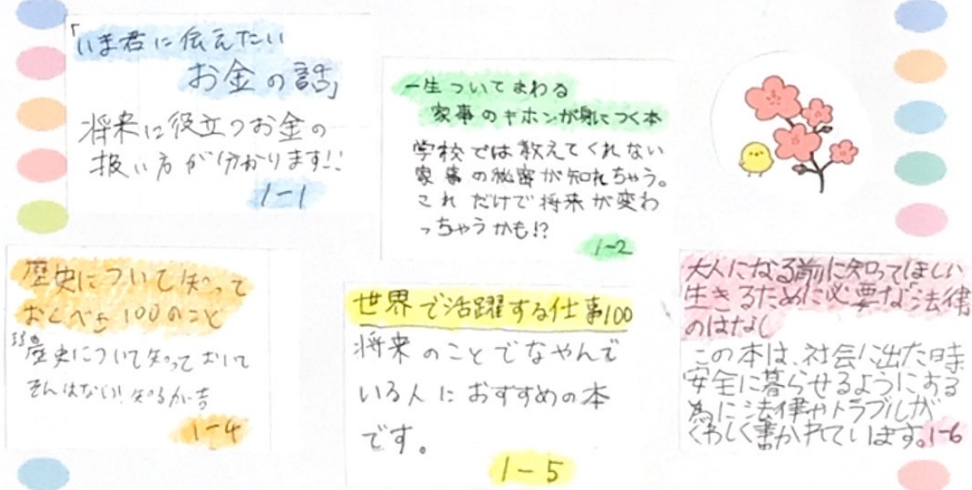 「いま君に伝えたい
お金の話」
将来に役立つお金の
扱い方が分かります!!
1-1
一生ついてまわる
家事のキホンが身につく本
学校では教えてくれない
家事の秘密が知れちゃう。
これだけで将来が変わ
っちゃうかも!?
1-2
歴史について知って
おくべき100のこと
歴史について知っておいて
そんはない!知るが吉
1-4
世界で活躍する仕事100
将来のことでなやんで
いる人におすすめの本
です。
1-5
大人になる前に知ってほしい
生きるために必要な「法律」
のはなし
この本は、社会に出た時
安全に暮らせるようにする
為に法律やトラブルが
くわしく書かれています。1-6